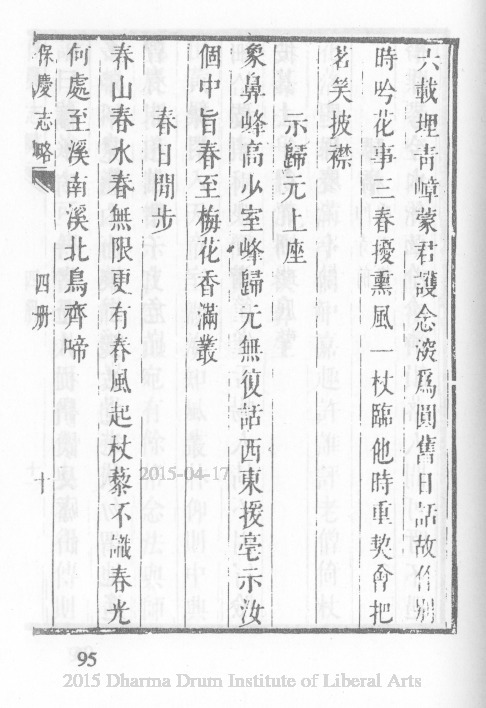 六載埋青嶂蒙君護念深爲圓舊日話故作別
時吟花事三春擾熏風一杖臨他時重契會把
茗笑披襟
示歸元上座
象鼻峰高少室峰歸元無復話西東援毫示汝
個中旨春至梅花香滿叢
春日閒步
春山春水春無限更有春風起杖藜不識春光
何處至溪南溪北鳥齊啼
保慶志略 四册 十
2015-04-17
95
2015 Dharma Drum Institute of Liberal Arts